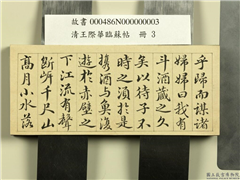 故書 000486N000000003
清王際華臨蘇帖 冊 3
乎歸而謀諸
婦婦曰我有
斗酒藏之久
矣以待子不
時之須於是
攜酒與魚復
遊於赤壁之
下江流有聲
斷岸千尺山
高月小水落
國立故宮博物院